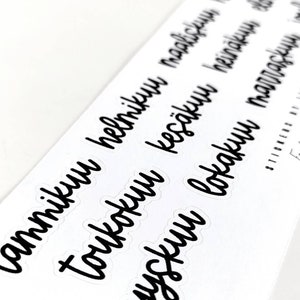 tammikuu helmikuu maaliskuu
toukokuu kesäkuu heinäkuu
syyskuu lokakuu marraskuu
STICKERS BY